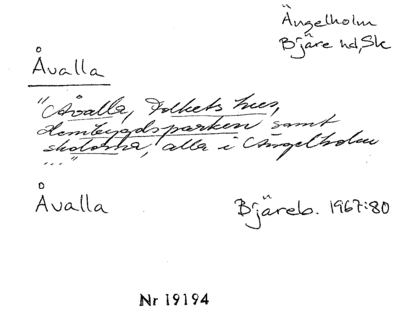 Ängelholm
Bjäre hd, Sk
Åvalla
"Åvalla, Folkets hus,
Hembygdsparken samt
skolorna, alla i Ängelholm
..."
Åvalla
Bjäreb. 1967:80
Nr 19194